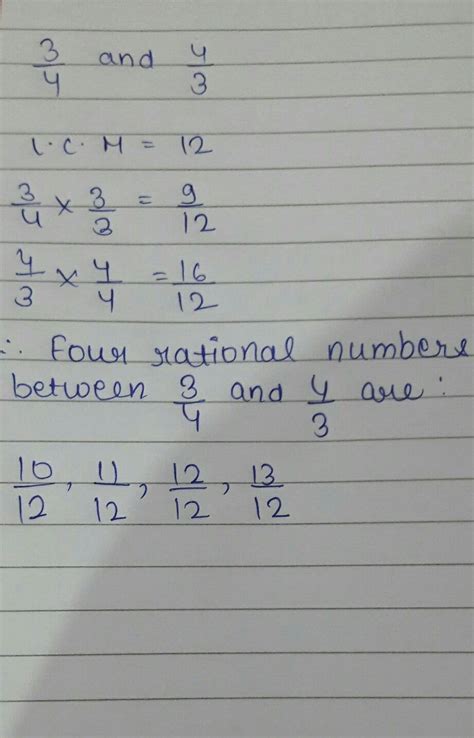 3/4 and 4/3
L.C.M = 12
3/4 × 3/3 = 9/12
4/3 × 4/4 = 16/12
∴ Four rational numbers
between 3/4 and 4/3 are :
10/12, 11/12, 12/12, 13/12